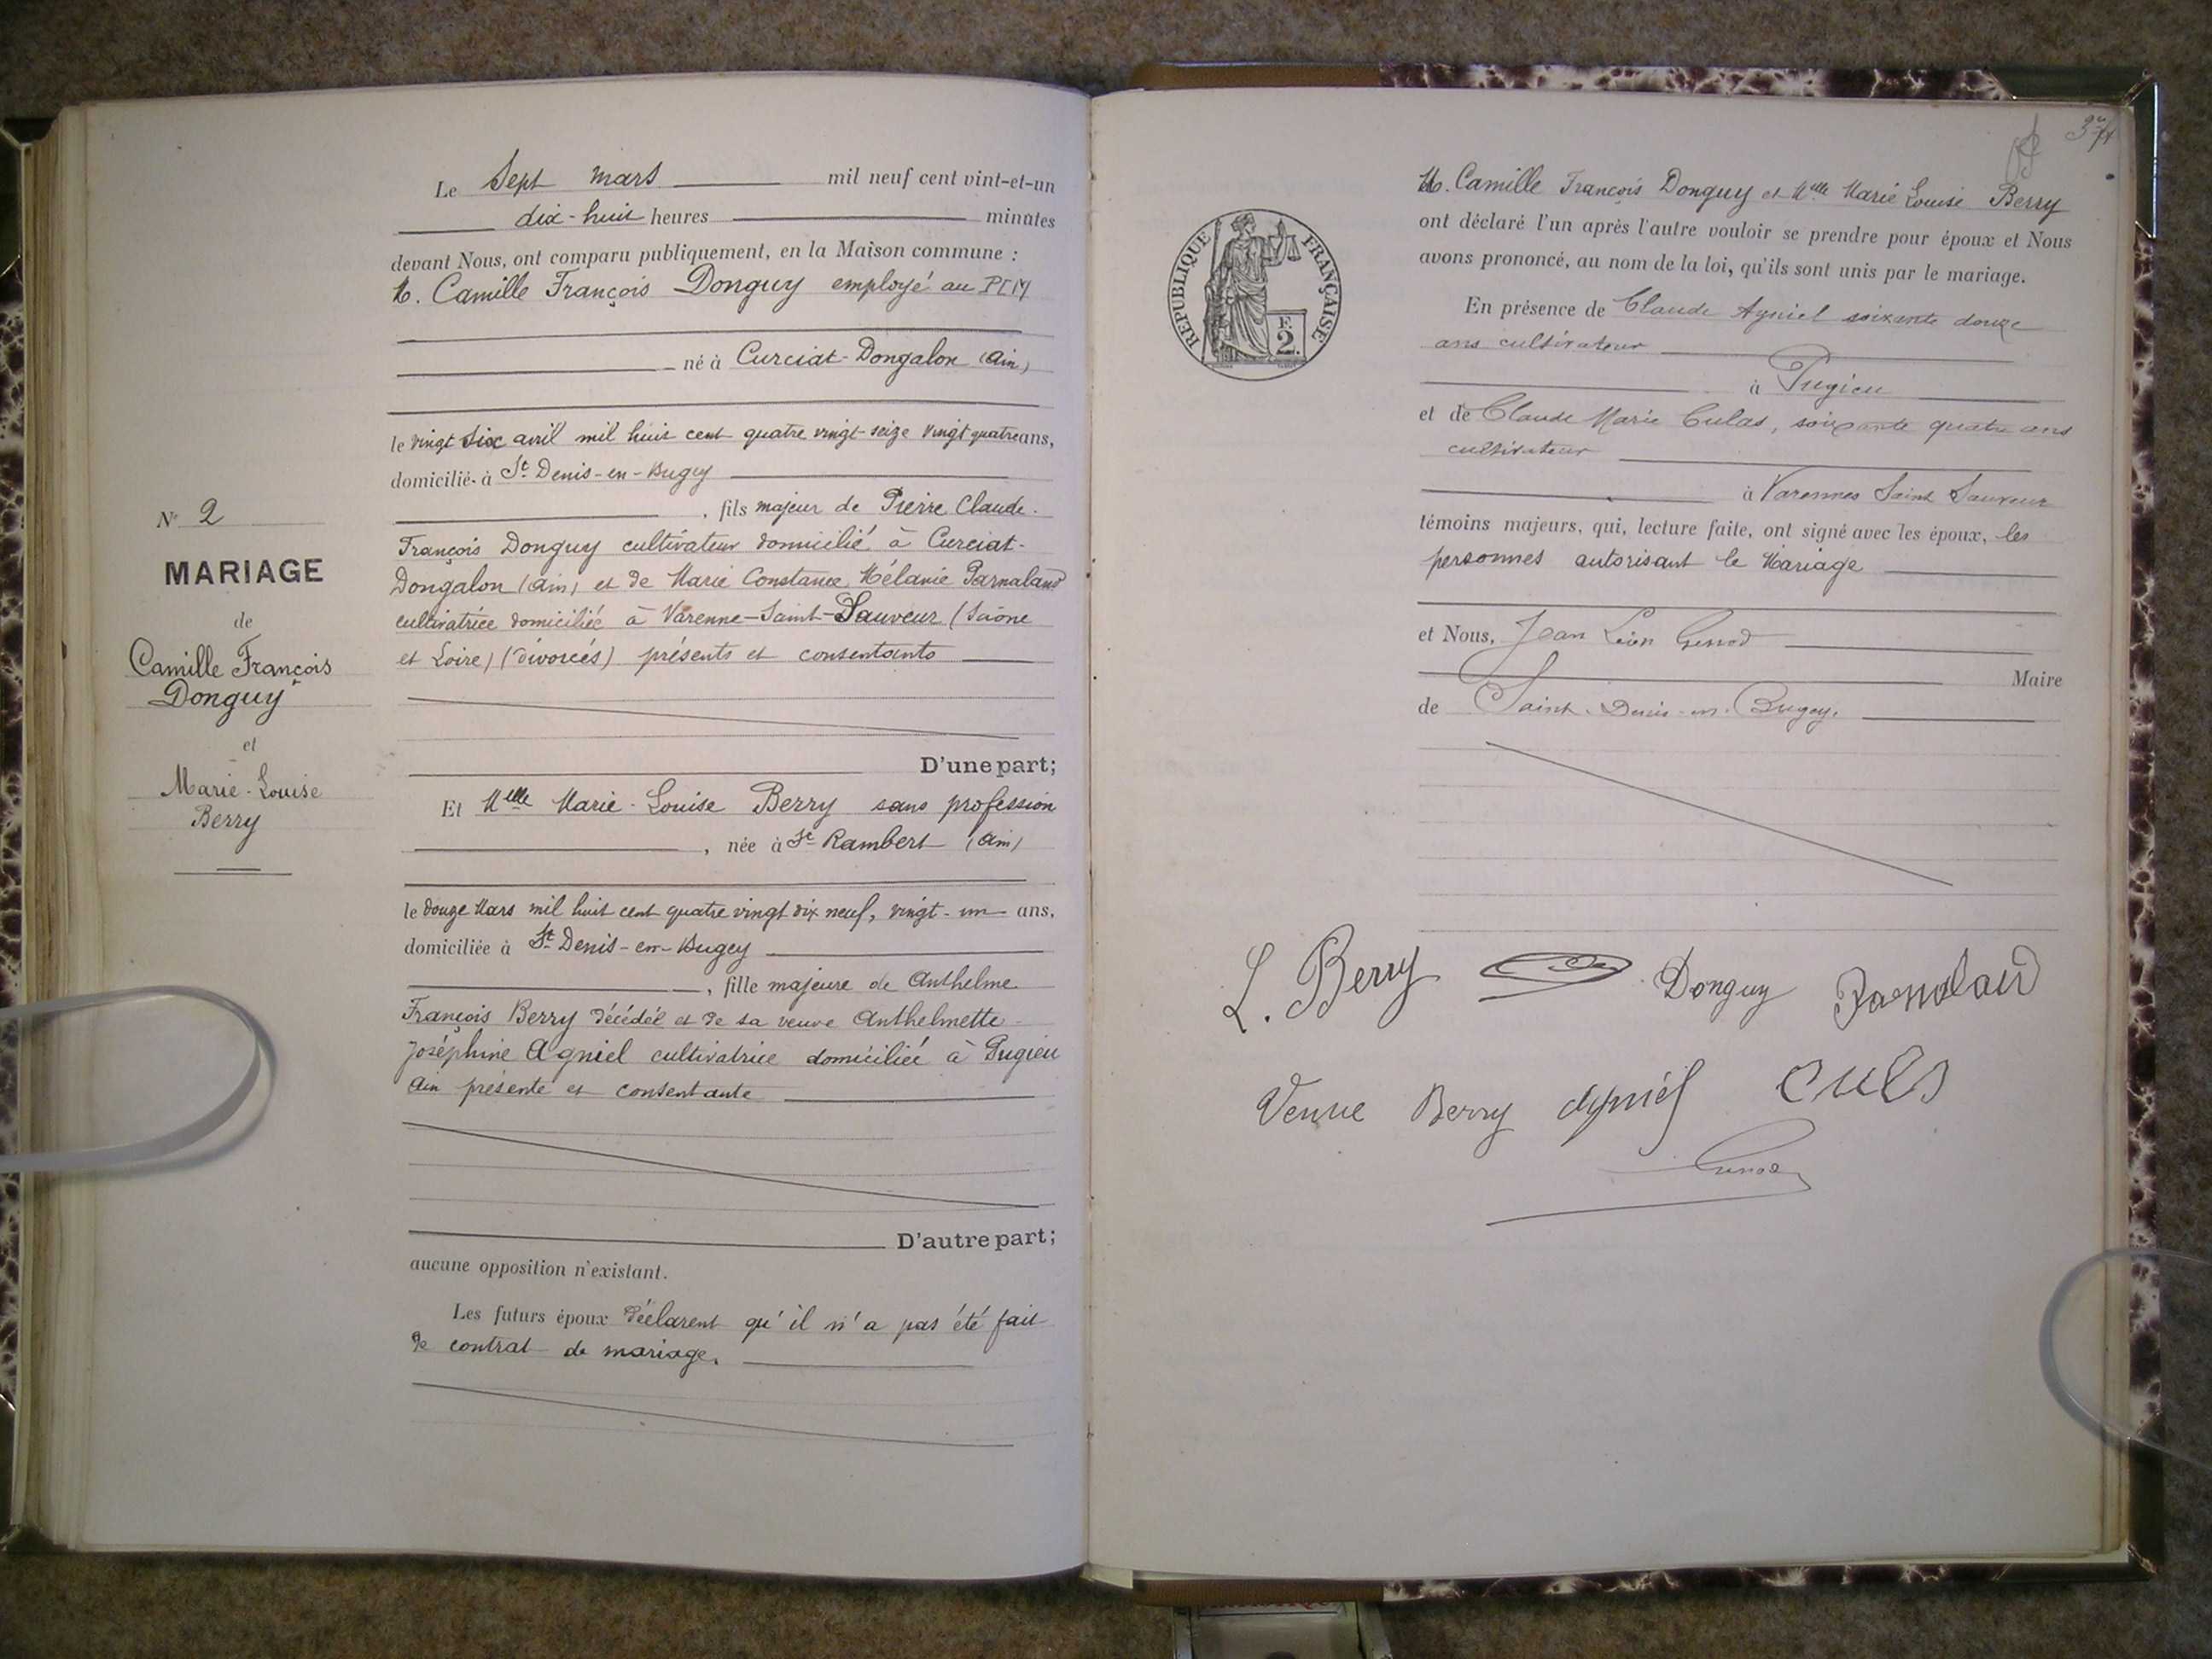 Le Sept mars mil neuf cent vint-et-un
dix-huit heures minutes
devant Nous, ont comparu publiquement, en la Maison commune :
M. Camille François Donguy employé au PLM
né à Curciat-Dongalon (Ain)
le vingt six avril mil huit cent quatre vingt-seize vingt quatre ans,
domicilié à St Denis-en-Bugey
, fils majeur de Pierre Claude
François Donguy cultivateur domicilié à Curciat-
Dongalon (Ain) et de Marie Constance Mélanie Parnaland
cultivatrice domiciliée à Varenne-Saint-Sauveur (Saône
et Loire) (divorcés) présents et consentants
D'une part;
Et Melle Marie-Louise Berry sans profession
, née à St Rambert (Ain)
le douze Mars mil huit cent quatre vingt dix neuf, vingt-un ans,
domiciliée à St Denis-en-Bugey
, fille majeure de Anthelme
François Berry décédé et de sa veuve Anthelmette
Joséphine Agniel cultivatrice domiciliée à Pugieu
Ain présente et consentante
D'autre part;
aucune opposition n'existant.
Les futurs époux déclarent qu'il n'a pas été fait
de contrat de mariage.
No 2
MARIAGE
de
Camille François
Donguy
et
Marie-Louise
Berry
M. Camille François Donguy et Melle Marie Louise Berry
ont déclaré l'un après l'autre vouloir se prendre pour époux et Nous
avons prononcé, au nom de la loi, qu'ils sont unis par le mariage.
En présence de Claude Agniel soixante douze
ans cultivateur
à Pugieu
et de Claude Marie Culas, soixante quatre ans
cultivateur
à Varennes Saint Sauveur
témoins majeurs, qui, lecture faite, ont signé avec les époux, les
personnes autorisant le Mariage
et Nous, Jean Léon Genod
Maire
de Saint-Denis-en-Bugey.
REPUBLIQUE FRANÇAISE
F.
2.
L. Berry Donguy Parnaland
Veuve Berry Agniel
Genod